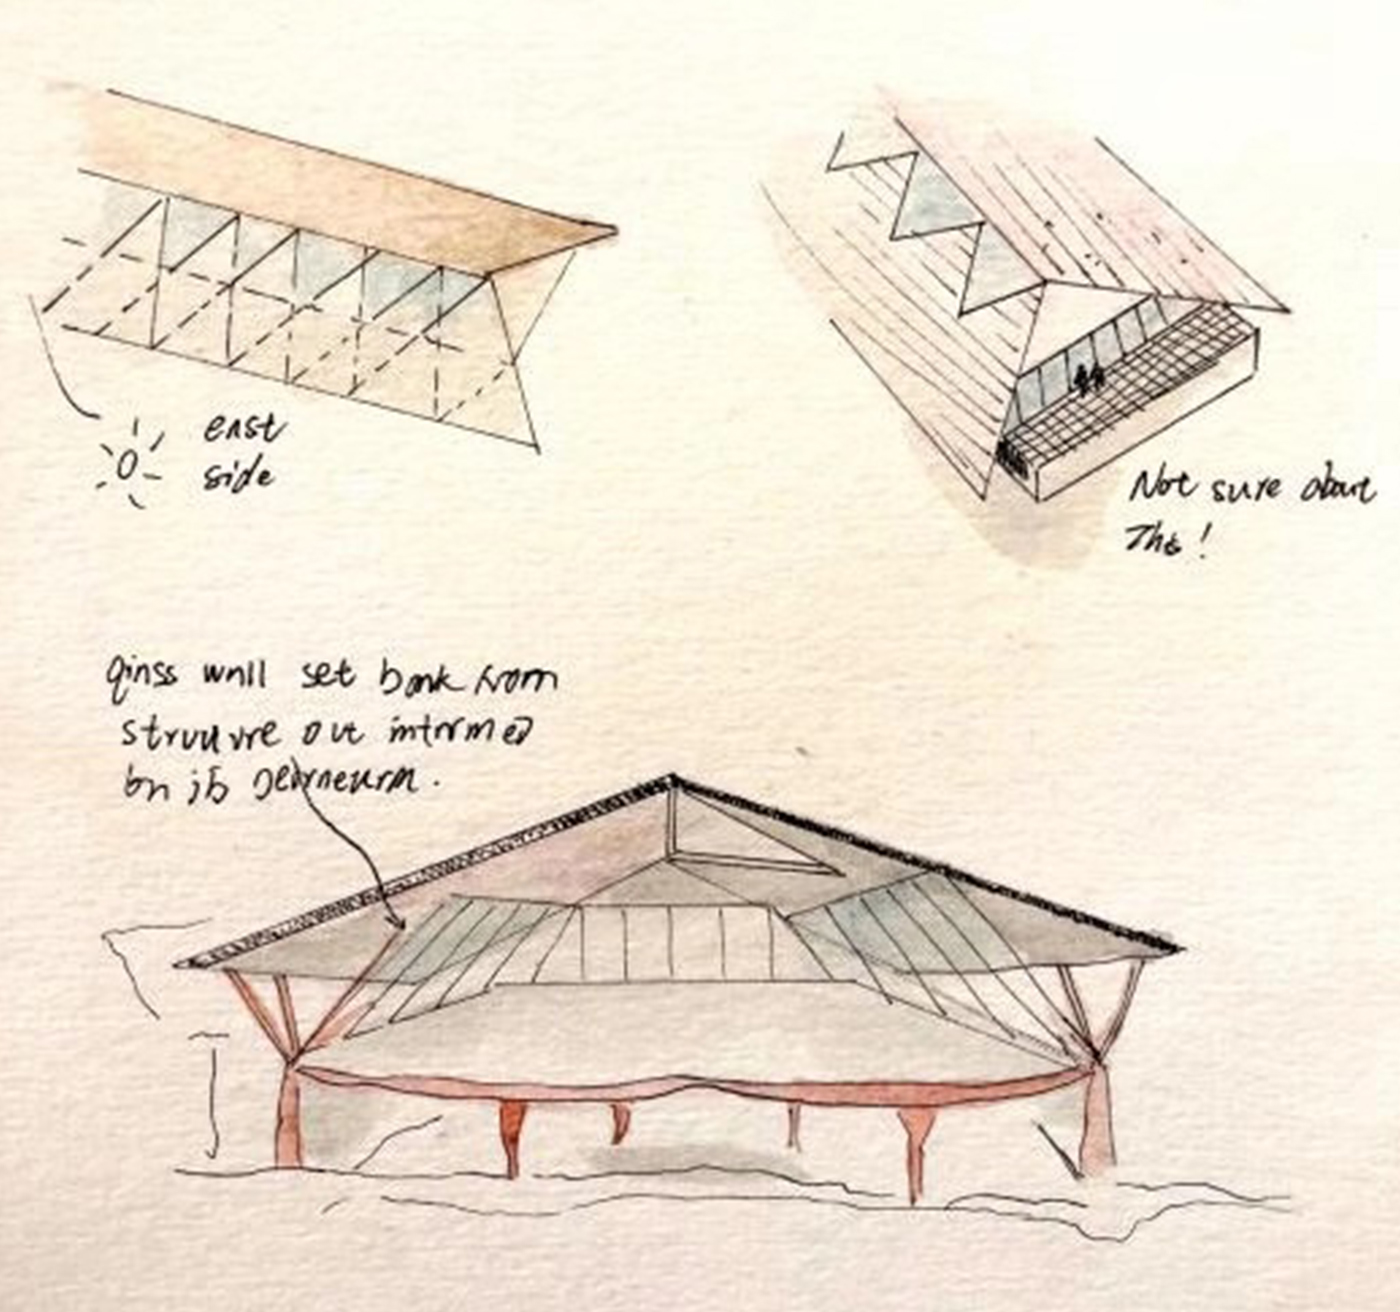 east
side
Not sure about
This!
glass wall set back from
structure but informed
by its geometry.